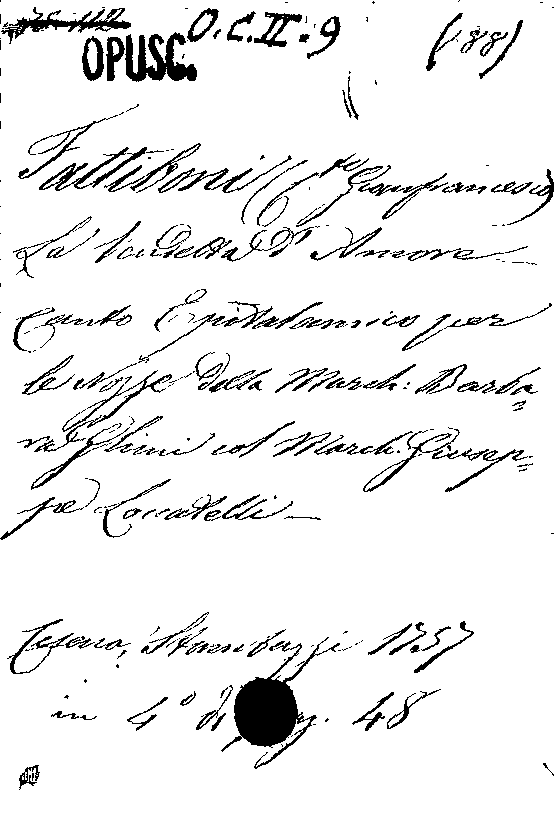 OPUSC. O.C.II.-9 (188)
Fattiboni (C.te Gianfrancesco)
La Vendetta d'Amore
Canto Epitalamico per
le Nozze della March: Barba=
ra Ghini col March. Giusep=
pe Loccatelli
Cesena,
1757
in 4° di pag. 48